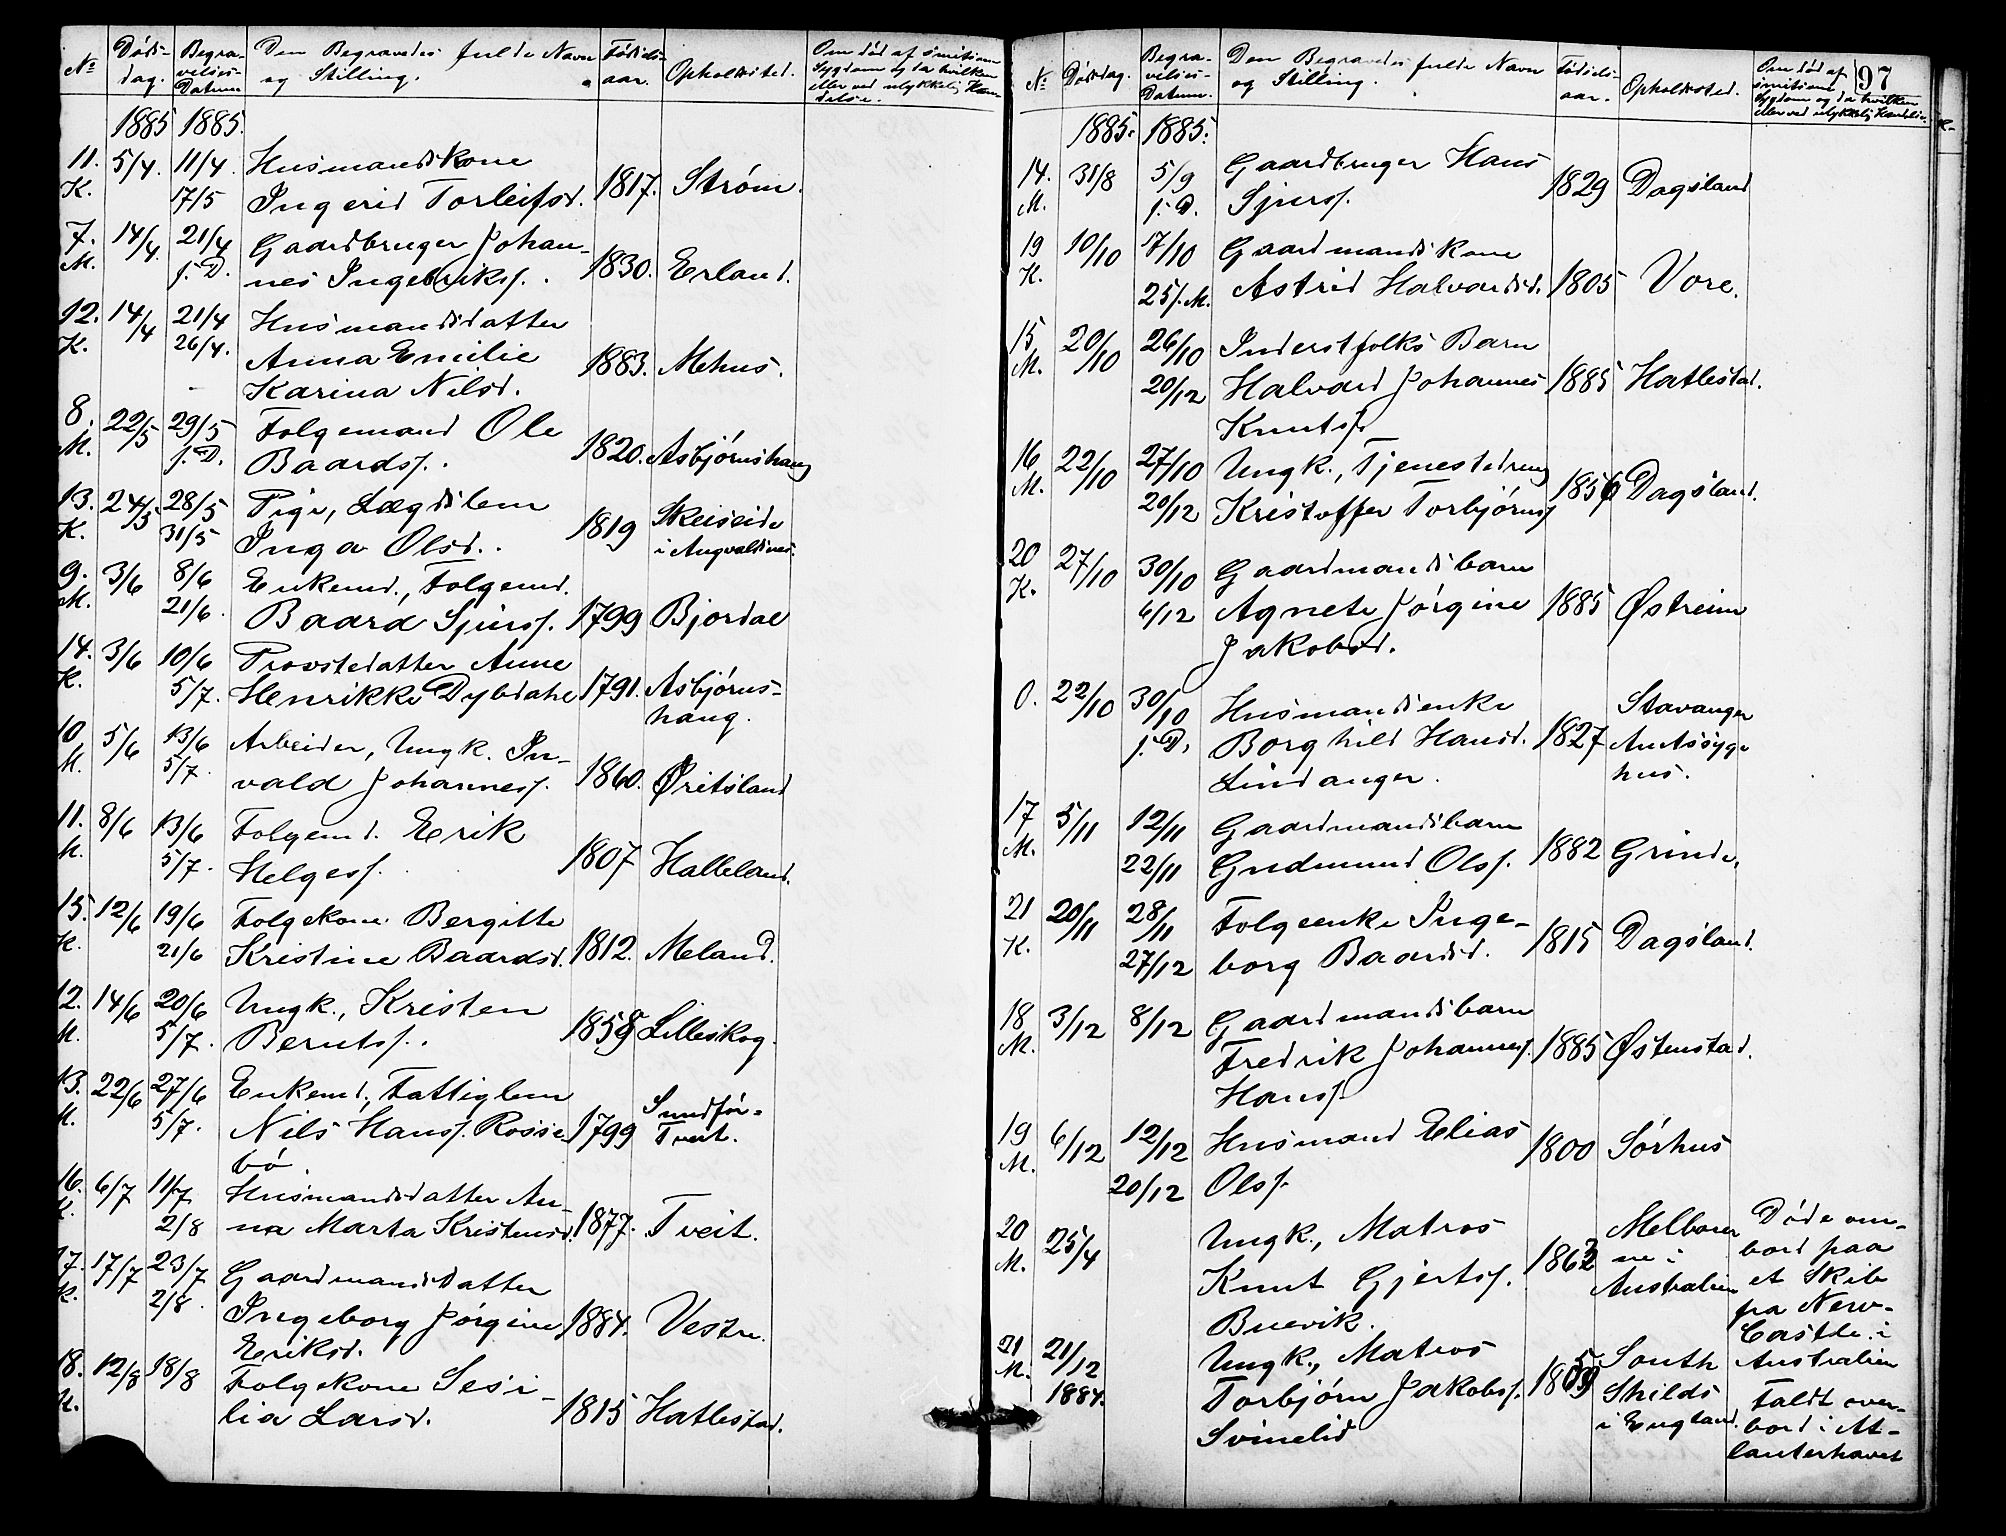 No
Døds-
dag.
Begra-
velses-
Datum
Den Begravedes fulde Navn
og Stilling.
Fødsels-
aar.
Opholdssted.
Om død af smitsom
Sygdom og da hvilken
eller ved ulykkelig Hæn-
delse.
1885 1885.
11. 5/4. 11/4. Husmandskone
K. 17/5 Ingerid Torleifsd. 1817. Strøm.
7. 14/4. 21/4 Gaardbruger Johan-
M. j. D. nes Ingebriktsf. 1830. Erland.
12. 14/4 21/4 Husmandsdatter
K. 26/4. Anna Emilie 1883. Mehus.
Karina Nilsd.
8. 22/5 29/5 Folgemand Ole
M. j. D. Baardsf. 1820. Asbjørnshaug
13. 24/5 28/5 Pige, Lægdslem
K. 31/5 Inga Olsd. 1819 Skeiseide
i Augvaldsnes.
9. 3/6 8/6 Enkemd., Folgemd.
M. 21/6. Baard Sjursf. 1799 Bjordal
14. 3/6 10/6 Provstedatter Anne
K. 5/7. Henrikke Dybdahl 1791. Asbjørns-
haug.
10 5/6 13/6 Arbeider, Ungk. In-
M. 5/7. vald Johannesf. 1860. Øritsland
11. 8/6 13/6 Folgemd. Erik
M. 5/7. Helgesf. 1807 Halleland.
15. 12/6 19/6 Folgekone Bergitte
K. 21/6 Kristine Baardsd. 1812. Meland.
12. 14/6 20/6 Ungk., Kristen
M. 5/7. Berntsf. 1858 Lilleskog.
13. 22/6 27/6 Enkemd., Fattiglem
M. 5/7. Nils Hansf. Rosse- 1799 Sundfør-
bø. Tveit.
16. 6/7 11/7 Husmandsdatter An-
K. 2/8 na Marta Kristensd. 1877. Tveit.
17. 17/7 23/7 Gaardmandsdatter
K. 2/8. Ingeborg Jørgine 1884. Vestre.
Eriksd.
18. 12/8 18/8 Folgekone Sesi-
K. lia Larsd. 1815 Hatlestad.
97
No
Dødsdag.
Begra-
velses-
Datum.
Den Begravedes fulde Navn
og Stilling.
Fødsels-
aar.
Opholdssted.
Om død af
smitsom
Sygdom og da hvilken
eller ved ulykkelig Hændelse.
1885. 1885.
14. 31/8 5/9 Gaardbruger Hans
M. j. D. Sjursf. 1829 Dagsland
19 10/10 17/10 Gaardmandskone
K. 25/. M. Astrid Halvardsd. 1805 Vore.
15 20/10 26/10 Inderstfolks Barn
M. 20/12 Halvard Johannes 1885 Hatlestad.
Knutsf.
16 22/10 27/10 Ungk., Tjenestedreng
M. 20/12 Kristoffer Torbjørnsf. 1856 Dagsland.
20 27/10 30/10 Gaardmandsbarn
K. 6/12 Agnete Jørgine 1885 Østreim
Jakobsd.
0. 22/10 30/10 Husmandsenke
j. D. Borghild Hansd. 1827 Stavanger
Lindanger. Amtssyge
hus.
17 5/11 12/11 Gaardmandsbarn
M. 22/11 Gudmund Olsf. 1882 Grinde.
21 20/11 28/11 Folgeenke Inge-
K. 27/12 borg Baardsd. 1815 Dagsland.
18 3/12 8/12 Gaardmandsbarn
M. Fredrik Johannesf. 1885 Østenstad.
Hansf.
19 6/12 12/12 Husmand Elias
M. 20/12 Olsf. 1800 Sørhus
20 25/4 Ungk., Matros
M. Knut Gjertsf. 1862 Melbour
Buevik. ne i
Australien
Døde om-
bord paa
et Skib
fra New-
Castle i
Australien
21 21/12 Ungk., Matros
M. 1884. Torbjørn Jakobsf. 1859 South
Svinelid Shilds
i England.
Faldt over-
bord i At-
lanterhavet